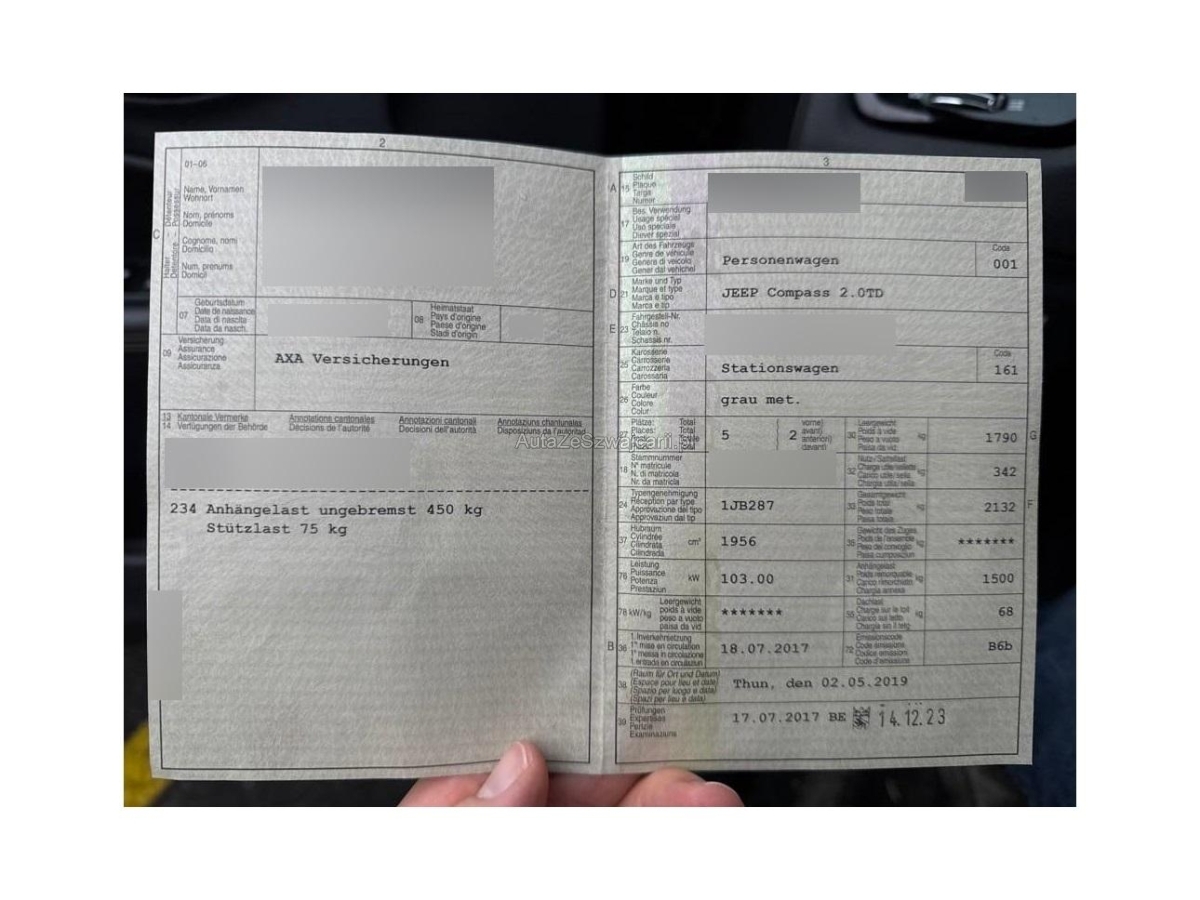 2
01-06
Name, Vornamen
Wohnort
Nom, prénoms
Domicile
Cognome, nomi
Domicilio
Num, prenums
Domicil
C
Halter – Détenteur
Detentore – Possessur
07
Geburtsdatum
Date de naissance
Data di nascita
Data da nasch.
08
Heimatstaat
Pays d'origine
Paese d'origine
Stadi d'origin
09
Versicherung
Assurance
Assicurazione
Assicuranza
AXA Versicherungen
13 Kantonale Vermerke Annotations cantonales Annotazioni cantonali Annotaziuns chantunales
14 Verfügungen der Behörde Décisions de l'autorité Decisioni dell'autorità Disposiziuns da l'autoritad
AutaZeSzwajcarii.pl
234 Anhängelast ungebremst 450 kg
Stützlast 75 kg
3
A 15
Schild
Plaque
Targa
Numer
17
Bes. Verwendung
Usage spécial
Uso speciale
Diever spezial
19
Art des Fahrzeugs
Genre de véhicule
Genere di veicolo
Gener dal vehichel
Personenwagen
Code
001
D 21
Marke und Typ
Marque et type
Marca e tipo
Marca e tip
JEEP Compass 2.0TD
E 23
Fahrgestell-Nr.
Châssis no
Telaio n.
Schassis nr.
25
Karosserie
Carrosserie
Carrozzeria
Carossaria
Stationswagen
Code
161
26
Farbe
Couleur
Colore
Colur
grau met.
27
Plätze: Total
Places: Total
5
2
vorne)
avant)
anteriori)
davant)
30
Leergewicht
Poids à vide
Peso a vuoto
Paisa da vid
kg
1790
G
18
Stammnummer
N° matricule
N. di matricola
Nr. da matricla
32
Nutz-/Sattellast
Charge utile/sellette
Carico utile/sella
Chargia utila/sella
kg
342
24
Typengenehmigung
Réception par type
Approvazione del tipo
Approvaziun dal tip
1JB287
33
Gesamtgewicht
Poids total
Peso totale
Paisa totala
kg
2132
F
37
Hubraum
Cylindrée
Cilindrata
Cilindrada
cm³
1956
35
Gewicht des Zuges
Poids de l'ensemble
Peso del convoglio
Paisa cumposiziun
kg
*******
76
Leistung
Puissance
Potenza
Prestaziun
kW
103.00
31
Anhängelast
Poids remorquable
Carico rimorchiato
Chargia annexa
kg
1500
78 kW/kg
Leergewicht
poids à vide
peso a vuoto
paisa da vid
*******
55
Dachlast
Charge sur le toit
Carico sul tetto
Chargia sin il tetg
kg
68
B 36
1. Inverkehrsetzung
1re mise en circulation
1a messa in circolazione
1. entrada en circulaziun
18.07.2017
72
Emissionscode
Code émissions
Codice emissioni
Code d'emissiuns
B6b
38
(Raum für Ort und Datum)
(Espace pour lieu et date)
(Spazio per luogo e data)
(Spazi per lieu e data)
Thun, den 02.05.2019
39
Prüfungen
Expertises
Perizie
Examinaziuns
17.07.2017 BE 14.12.23